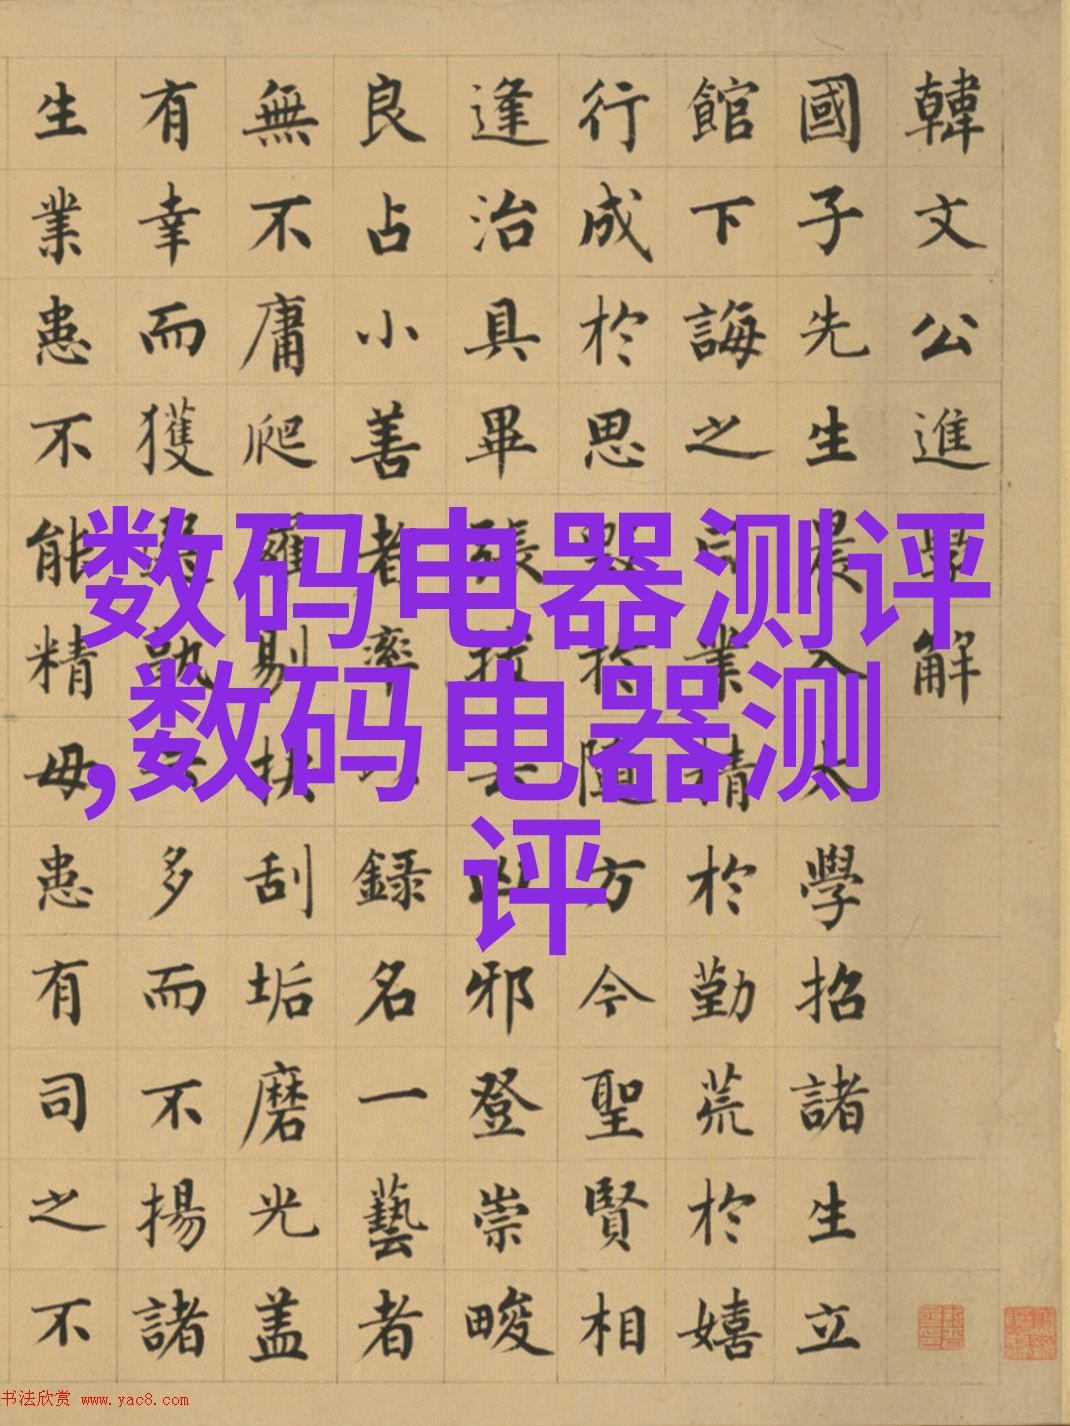 韓文公進學解
國子先生晨入太學招諸生立
館下誨之曰業精於勤荒於嬉
行成於思毀於隨方今聖賢相
逢治具畢張拔去凶邪登崇畯
良占小善者率以錄名一藝者
無不庸爬羅剔抉刮垢磨光盖
有幸而獲選孰云多而不揚諸
生業患不能精毋患有司之不
数码电器测评
,数码电器测
评
书法欣赏 www.yac8.com